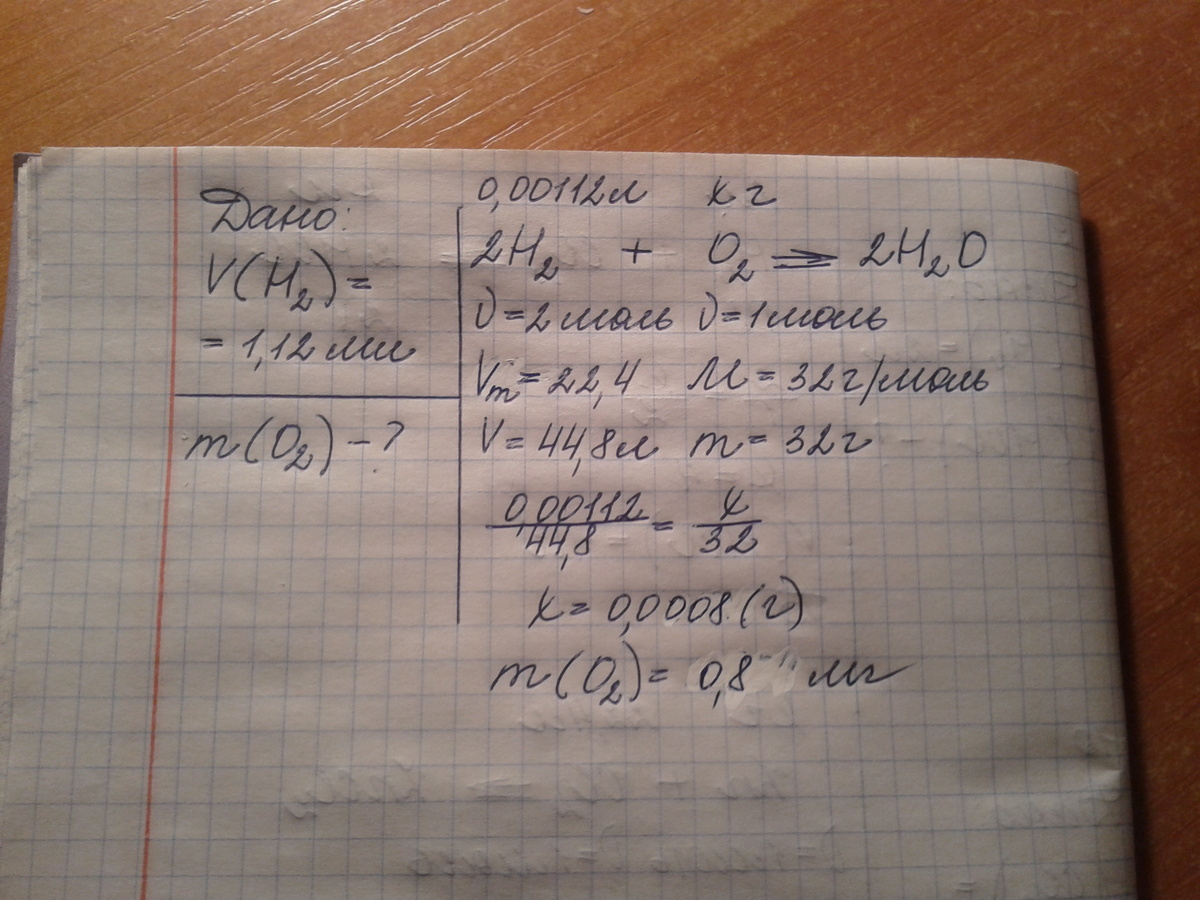 Дано:
V(H₂) =
= 1,12 мл
m(O₂) – ?
0,00112 л x г
2H₂ + O₂ ⟹ 2H₂O
ν = 2 моль ν = 1 моль
Vm = 22,4 M = 32 г/моль
V = 44,8 л m = 32 г
0,00112/44,8 = x/32
x = 0,0008 (г)
m(O₂) = 0,8 мг